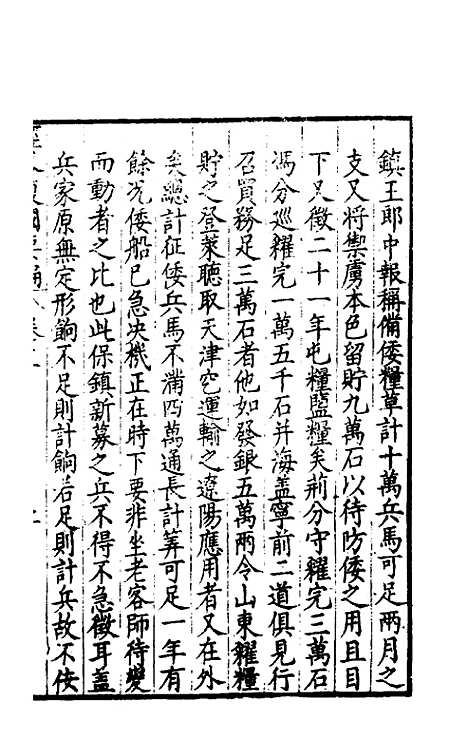 鎮王郎中報稱備倭糧草計十萬兵馬可足兩月之
支又將禦虜本色留貯九萬石以待防倭之用且目
下只徵二十一年屯糧鹽糧矣荊分守糴完三萬石
馮分巡糴完一萬五千石并海盖寧前二道俱見行
召買務足三萬石者他如發銀五萬兩令山東糴糧
貯之登萊聽取天津空運輸之遼陽應用者又在外
矣總計征倭兵馬不滿四萬通長計筭可足一年有
餘况倭船已急决機正在時下要非坐老客師待變
而動者之比也此保鎮新募之兵不得不急徵耳盖
兵家原無定形餉不足則計餉若足則計兵故不佞